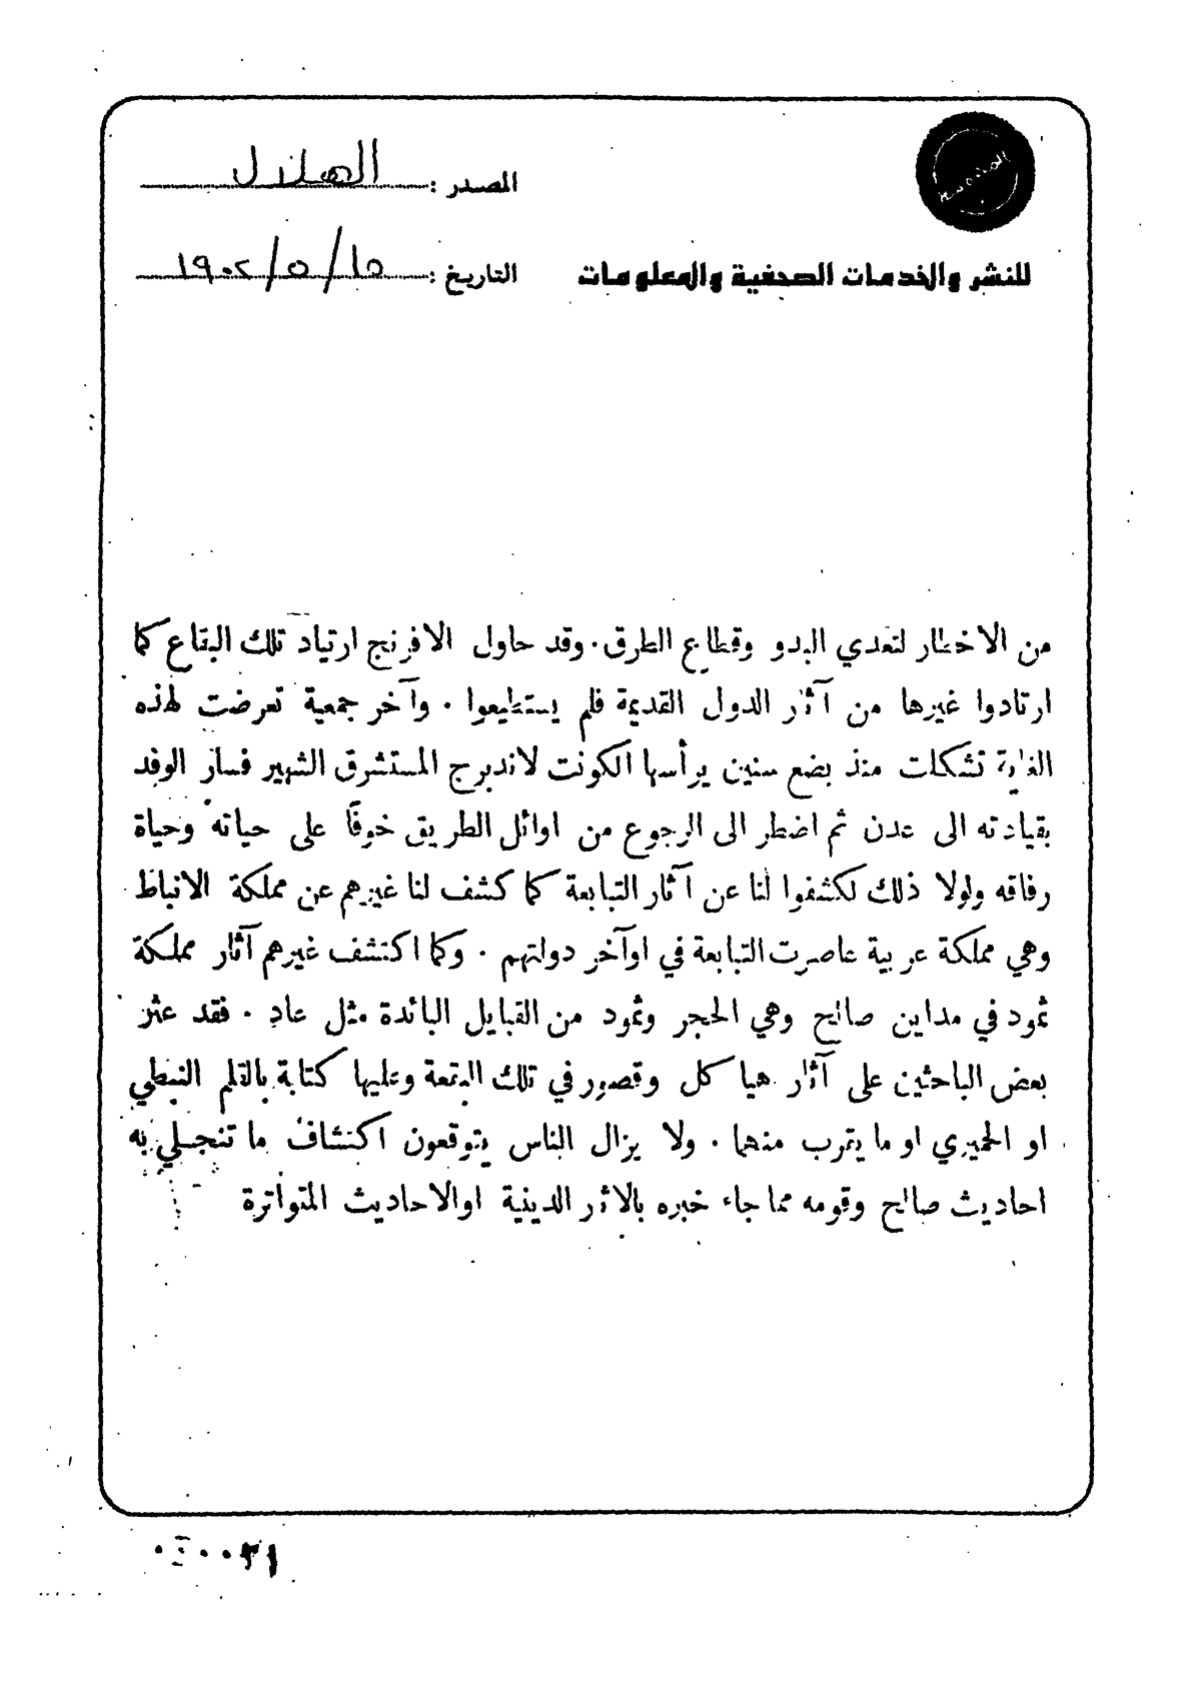 المصدر : الهلال
للنشر والخدمات الصحفية والمعلومات
التاريخ : ١٥/٥/١٩٠٢
من الاخطار لتعدي البدو وقطاع الطرق . وقد حاول الافرنج ارتياد تلك البقاع كما
ارتادوا غيرها من آثار الدول القديمة فلم يستطيعوا . وآخر جمعية تعرضت لهذه
الغاية تشكلت منذ بضع سنين يرأسها الكونت لاندبرج المستشرق الشهير فسار الوفد
بقيادته الى عدن ثم اضطر الى الرجوع من اوائل الطريق خوفًا على حياته وحياة
رفاقه ولولا ذلك لكشفوا لنا عن آثار التبابعة كما كشف لنا غيرهم عن مملكة الانباط
وهي مملكة عربية عاصرت التبابعة في اوآخر دولتهم . وكما اكتشف غيرهم آثار مملكة
ثمود في مداين صالح وهي الحجر وثمود من القبايل البائدة مثل عاد . فقد عثر
بعض الباحثين على آثار هياكل وقصور في تلك البقعة وعليها كتابة بالقلم النبطي
او الحميري او ما يقرب منهما . ولا يزال الناس يتوقعون اكتشاف ما تنجلي به
احاديث صالح وقومه مما جاء خبره بالاثر الدينية او الاحاديث المتواترة